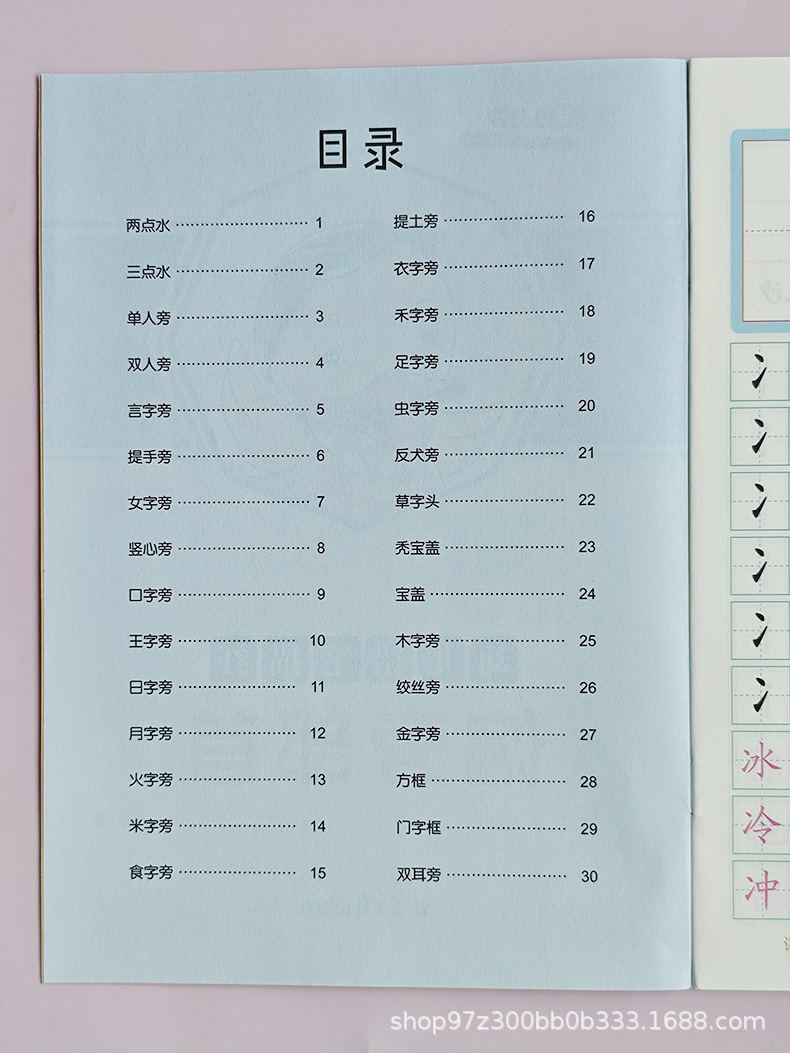 目录
两点水 1
三点水 2
单人旁 3
双人旁 4
言字旁 5
提手旁 6
女字旁 7
竖心旁 8
口字旁 9
王字旁 10
日字旁 11
月字旁 12
火字旁 13
米字旁 14
食字旁 15
提土旁 16
衣字旁 17
禾字旁 18
足字旁 19
虫字旁 20
反犬旁 21
草字头 22
秃宝盖 23
宝盖 24
木字旁 25
绞丝旁 26
金字旁 27
方框 28
门字框 29
双耳旁 30
冫
冫
冫
冫
冫
冫
冰
冷
冲
shop97z300bb0b333.1688.com